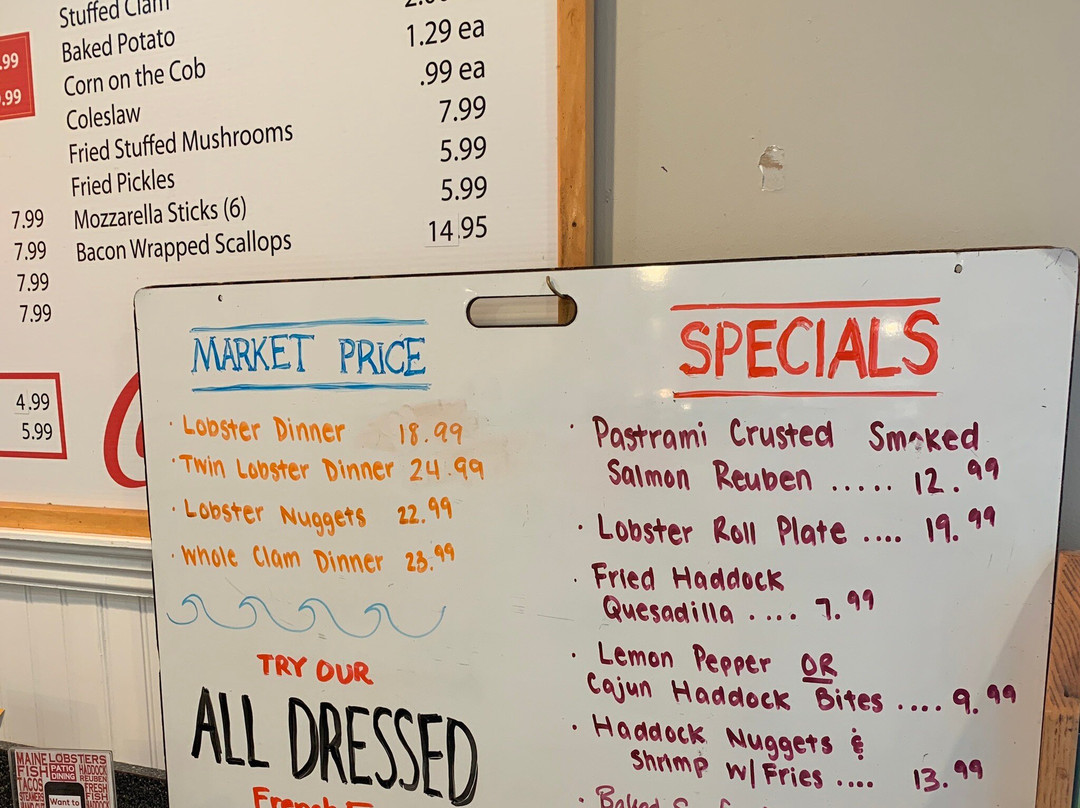 Stuffed Clam
Baked Potato 1.29 ea
Corn on the Cob .99 ea
Coleslaw 7.99
Fried Stuffed Mushrooms 5.99
Fried Pickles 5.99
Mozzarella Sticks (6) 14.95
Bacon Wrapped Scallops
.99
.99
7.99
7.99
7.99
7.99
4.99
5.99
MARKET PRICE
· Lobster Dinner 18.99
· Twin Lobster Dinner 24.99
· Lobster Nuggets 22.99
· Whole Clam Dinner 23.99
TRY OUR
ALL DRESSED
French
SPECIALS
· Pastrami Crusted Smoked
Salmon Reuben ..... 12.99
· Lobster Roll Plate .... 19.99
· Fried Haddock
Quesadilla .... 7.99
· Lemon Pepper OR
Cajun Haddock Bites .... 9.99
· Haddock Nuggets &
Shrimp w/ Fries .... 13.99
· Baked
MAINE LOBSTERS
FISH PATIO HADDOCK
TACOS DINING REUBEN
STEAMERS FRESH
FISH
Want to HADDOCK